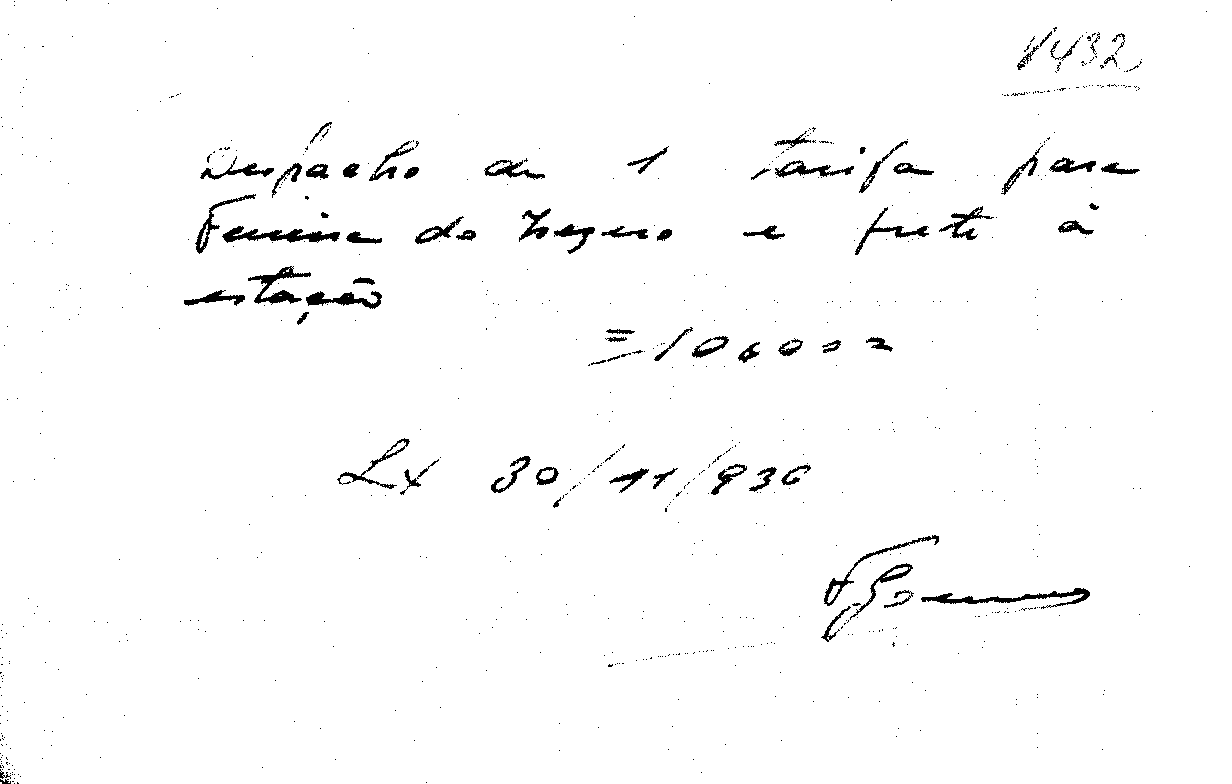 1432
Despacho de 1 tarifa para
Ferreira do Zezere e frete à
estação
= 10$000
Lx 30/11/936
FGomes